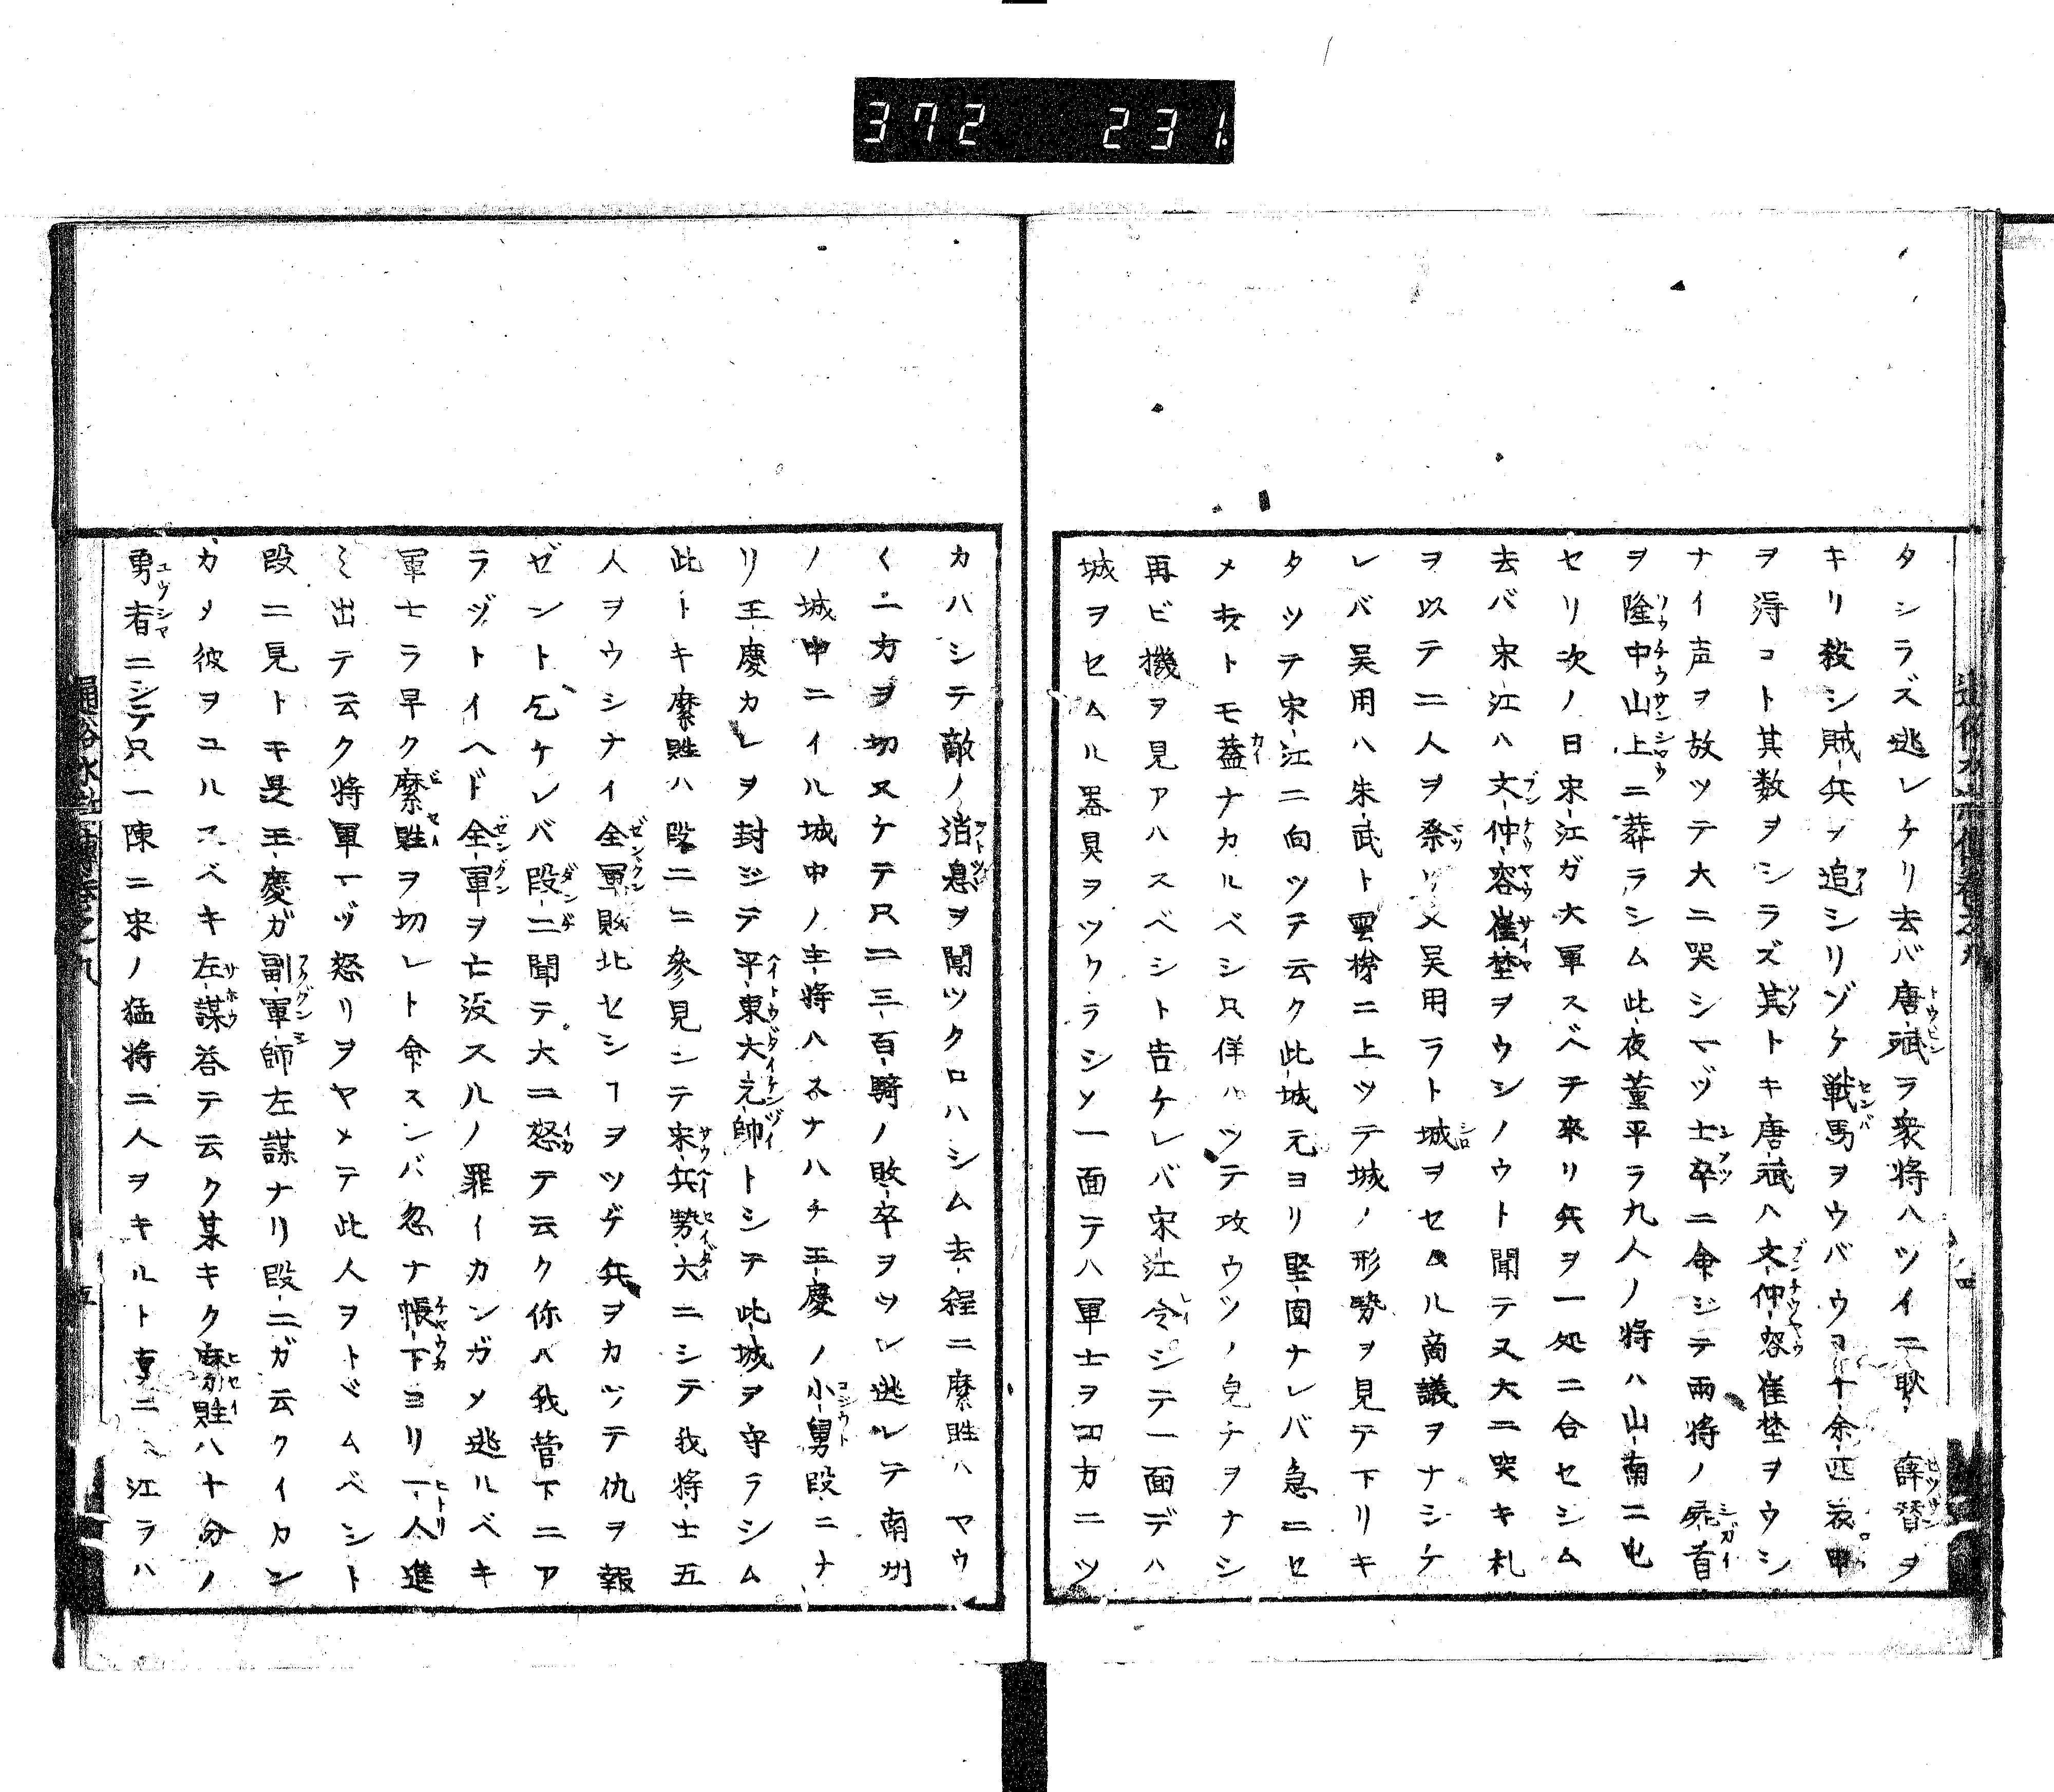 372 231
タシラズ逃レケリ去バ唐斌ラ衆将ハツイニ耿 薛賛ヲ
キリ殺シ賊兵ヲ追シリゾケ戦馬ヲウバウコト十余匹衣甲
ヲ得コト其数ヲシラズ其トキ唐斌ハ文仲容崔埜ヲウシ
ナイ声ヲ放ツテ大ニ哭シマヅ士卒ニ命ジテ両将ノ死首
ヲ隆中山上ニ葬ラシム此夜董平ラ九人ノ将ハ山南ニ屯
セリ次ノ日宋江ガ大軍スベテ来リ兵ヲ一処ニ合セシム
去バ宋江ハ文仲容崔埜ヲウシノウト聞テ又大ニ哭キ礼
ヲ以テ二人ヲ祭リ又呉用ラト城ヲセムル商議ヲナシケ
レバ呉用ハ朱武ト雲梯ニ上ツテ城ノ形勢ヲ見テ下リキ
タツテ宋江ニ向ツテ云ク此城元ヨリ堅固ナレバ急ニセ
メ トモ益ナカルベシ只佯ハツテ攻ウツノ皃チヲナシ
再ビ機ヲ見アハスベシト告ケレバ宋江令シテ一面デハ
城ヲセムル器具ヲツクラシソ一面テハ軍士ヲ四方ニツ
カハシテ敵ノ消息ヲ聞ツクロハシム去程ニ縻貹ハヤウ
く二方ヲ切ヌケテ只二三百騎ノ敗卒ヲツレ逃レテ南州
ノ城中ニイル城中ノ主将ハスナハチ王慶ノ小舅段二ナ
リ王慶カレヲ封ジテ平東大元帥トシテ此城ヲ守ラシム
此トキ縻貹ハ段二ニ参見シテ宋兵勢大ニシテ我将士五
人ヲウシナイ全軍敗北セシヿヲツゲ兵ヲカツテ仇ヲ報
ゼント乞ケレバ段二聞テ大ニ怒テ云ク你ハ我菅下ニア
ラヅトイヘド全軍ヲ亡没スルノ罪イカンガメ逃ルベキ
軍士ラ早ク縻貹ヲ切レト命スンバ忽ナ帳下ヨリ一人進
ミ出テ云ク将軍マヅ怒リヲヤメテ此人ヲトドムベシト
段二見トキ是王慶ガ副軍師左謀ナリ段二ガ云クイカン
カメ彼ヲユルスベキ左謀答テ云ク某キク縻貹ハ十分ノ
勇者ニシテ只一陳ニ宋ノ猛将二人ヲキルト真ニ 江ラハ
通俗水滸傳巻之九